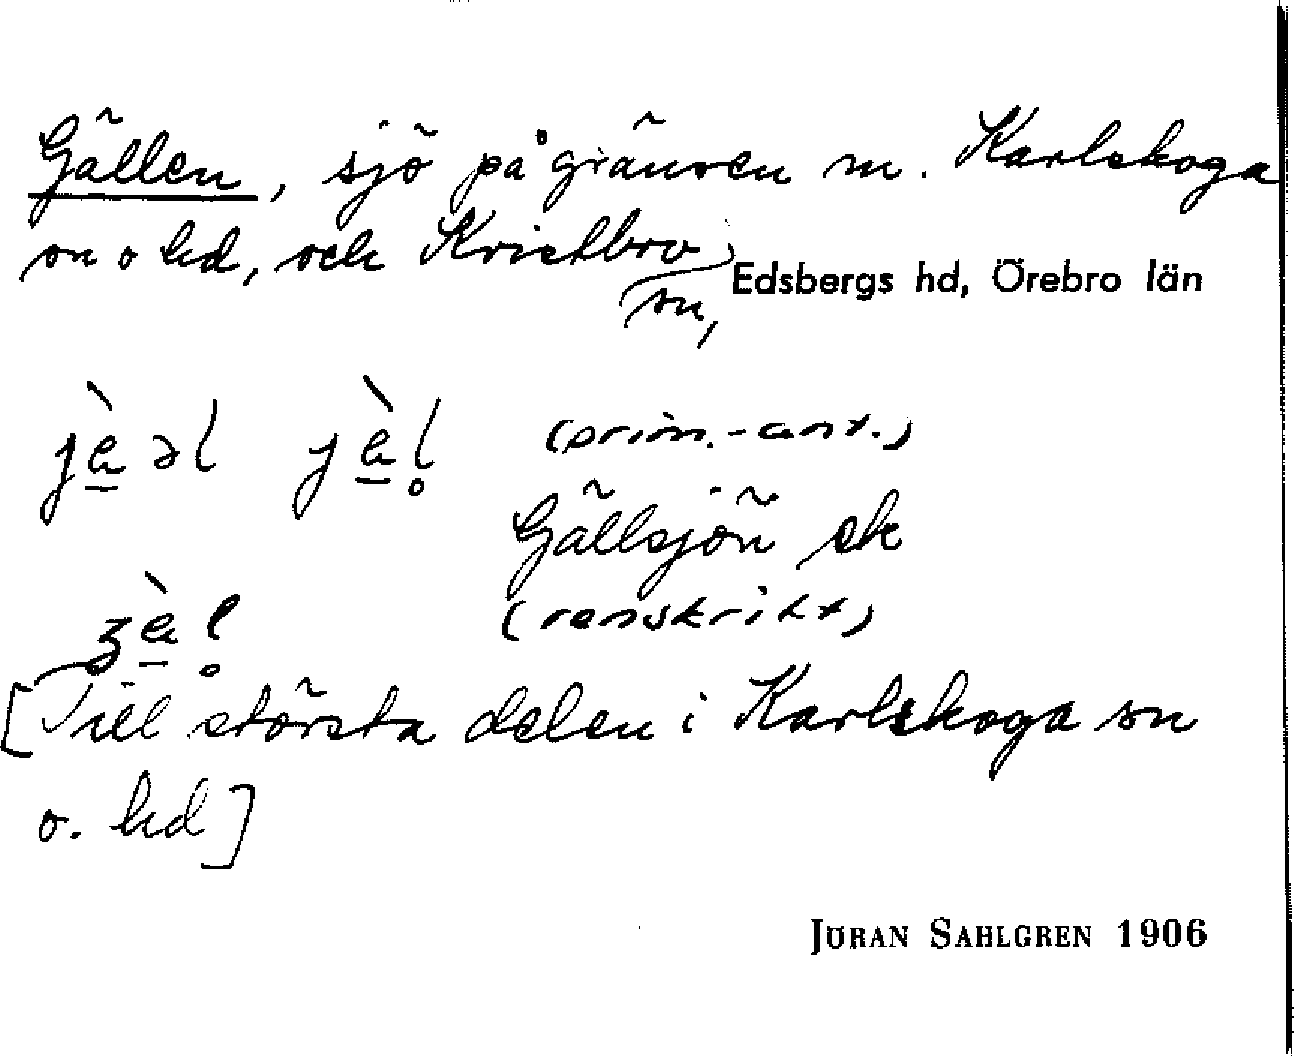 Gällen, sjö på gränsen m. Karlskoga
sn o hd, och Kristbro
sn, Edsbergs hd, Örebro län
(prim.-ant.)
Gällsjön sk
(renskrift)
[Till största delen i Karlskoga sn
o. hd]
JÖRAN SAHLGREN 1906